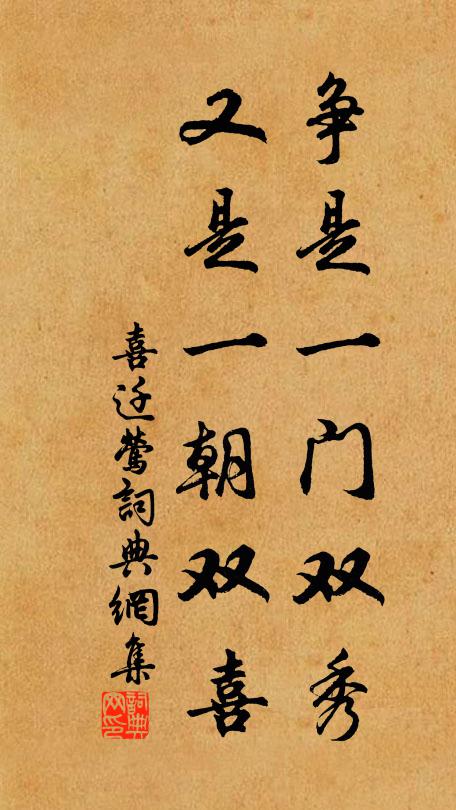 争是一门双秀
又是一朝双喜
喜迁莺詞典網集
詞典网印